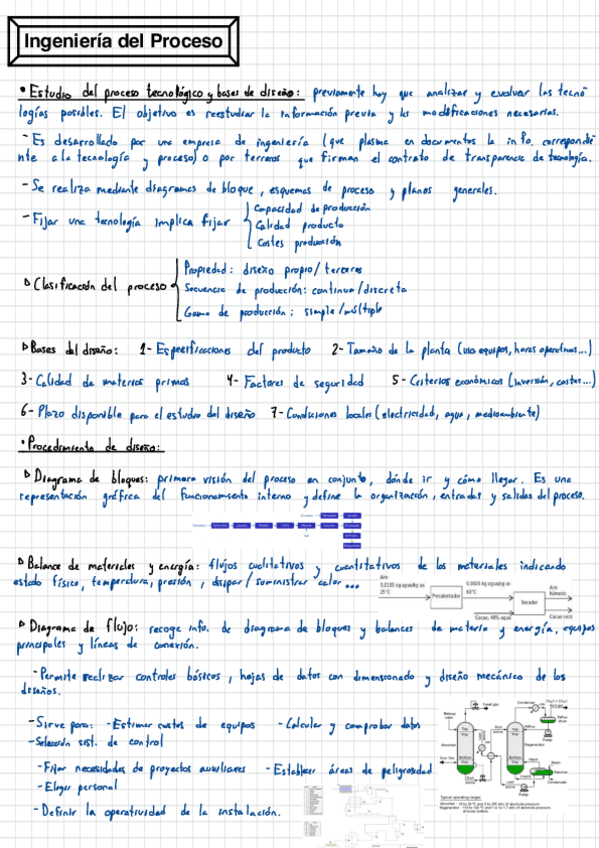 Ingeniería del Proceso
• Estudio del proceso tecnológico y bases de diseño: previamente hay que analizar y evaluar las tecno
logías posibles. El objetivo es reestudiar la información previa y las modificaciones necesarias.
- Es desarrollado por una empresa de ingeniería (que plasma en documentos la info. correspondie
nte a la tecnología y proceso) o por terceros que firman el contrato de transparencia de tecnología.
- Se realiza mediante diagramas de bloque, esquemas de proceso y planos generales.
- Fijar una tecnología implica fijar
Capacidad de producción
Calidad producto
Costes producción
Clasificación del proceso
Propiedad: diseño propio/terceros
Secuencia de producción: continua/discreta
Gama de producción: simple/múltiple
Bases del diseño: 1- Especificaciones del producto 2- Tamaño de la planta (uso equipos, horas operativas...)
3- Calidad de materias primas 4- Factores de seguridad 5- Criterios económicos (inversión, costes...)
6- Plazo disponible para el estudio del diseño 7- Condiciones locales (electricidad, agua, medioambiente)
• Procedimiento de diseño:
Diagrama de bloques: primera visión del proceso en conjunto, dónde ir y cómo llegar. Es una
representación gráfica del funcionamiento interno y define la organización, entradas y salidas del proceso.
Balance de materiales y energía: flujos cualitativos y cuantitativos de los materiales indicando
estado físico, temperatura, presión, disipar/suministrar calor...
Aire
0,0105 kg agua/kg as
25°C
Precalentador
0,0605 kg agua/kg as
60°C
Secador
Aire
húmedo
Cacao, 48% agua
Cacao seco
Diagrama de flujo: recoge info. de diagrama de bloques y balances de materia y energía, equipos
principales y líneas de conexión.
- Permite realizar controles básicos, hojas de datos con dimensionado y diseño mecánico de los
diseños.
- Sirve para: - Estimar costes de equipos - Calcular y comprobar datos
- Selección sist. de control
- Fijar necesidades de proyectos auxiliares - Establecer áreas de peligrosidad
- Elegir personal
- Definir la operatividad de la instalación.
Sweet gas
Makeup
water
Absorber
Sour Gas
Condenser
Reflux
drum
Pump
Regenerator
Steam
Reboiler
Condensate
Pump
Typical operating ranges